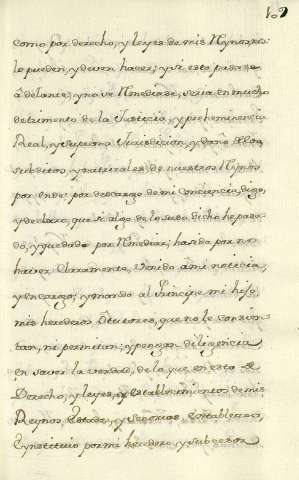 como por derecho, y leyes de mis Rynos, no
lo pueden, y deven hacer; y si esto pasase
adelante, y no se Rmediase, seria en mucho
detrimento de la Justicia, y prehminencia
Real, y suprema Jurisdicion, y daño de los
subditos, y naturales de nuestros Rynos
por ende: por descargo de mi Conciencia, digo,
y declaro, que si algo de lo suso dicho he pasa-
do, y quedado por Rmediar, ha sido por no
haver Claramente, venido a mi noticia,
y encargo, y mando al Principe mi hijo,
mis herederos, que no le consien-
tan, ni permitan; y pongan diligencia
en saver la verdad, de lo que en esto
Derecho, y leyes, y establecimientos de mis
Reynos, Estados, y Señorios, establezco,
E ynstituio por mi heredero, y subcesor